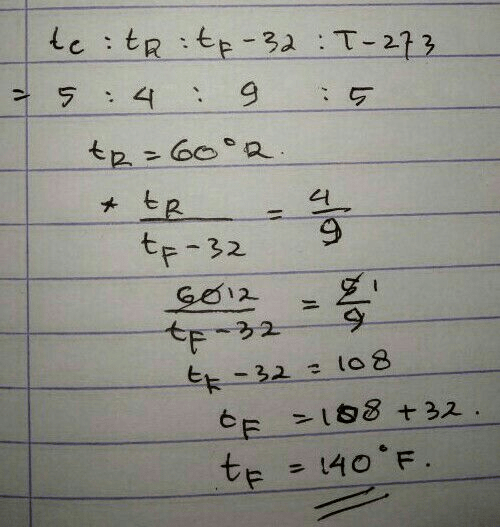 tc : tR : tF - 32 : T - 273
= 5 : 4 : 9 : 5
tR = 60°R.
* tR / tF - 32 = 4 / 9
60 12 / tF - 32 = 5 1 / 9
tF - 32 = 108
tF = 108 + 32.
tF = 140°F.